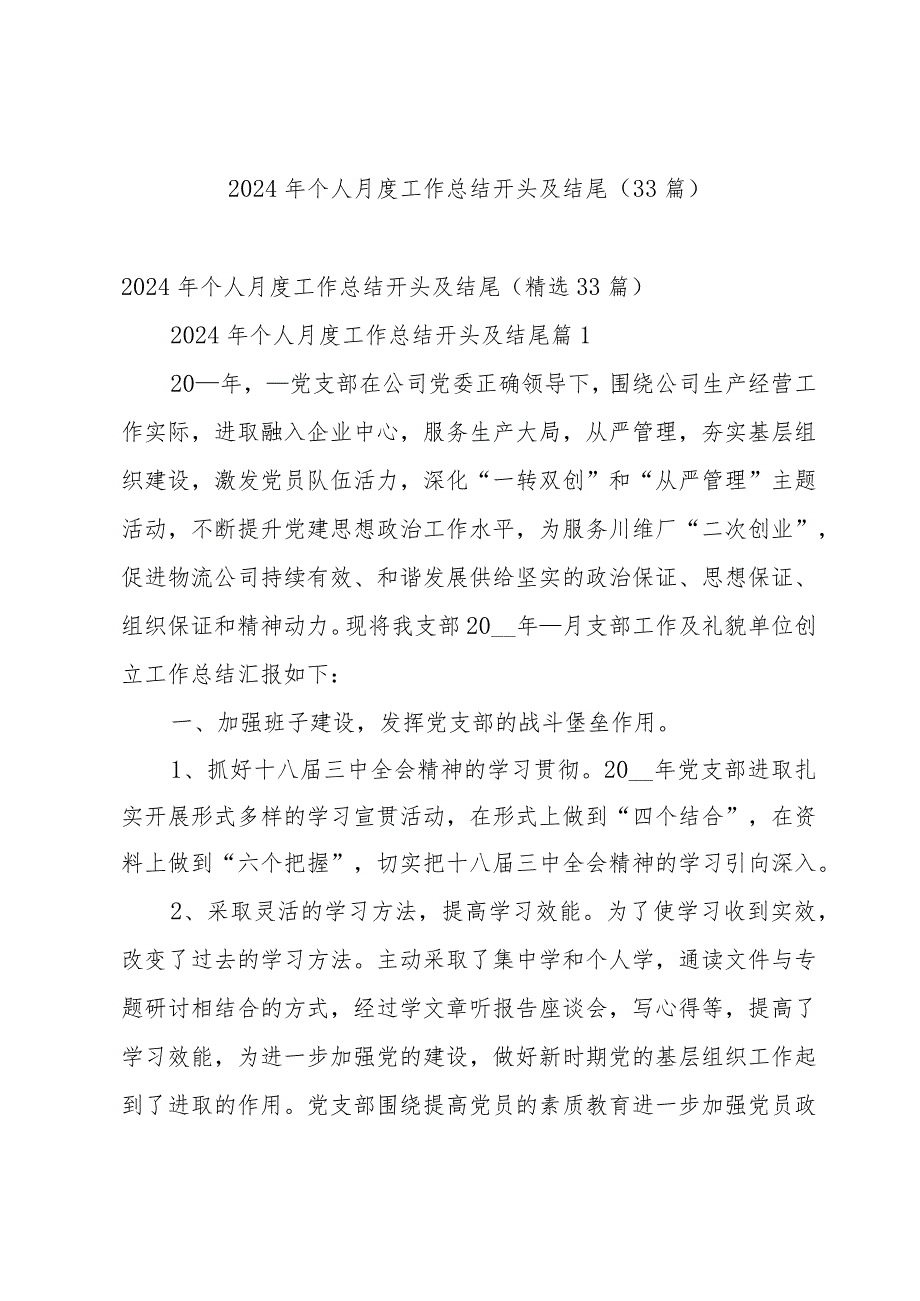 2024 年个人月度工作总结开头及结尾（33 篇）
2024 年个人月度工作总结开头及结尾（精选 33 篇）
2024 年个人月度工作总结开头及结尾篇 1
20—年，—党支部在公司党委正确领导下，围绕公司生产经营工
作实际，进取融入企业中心，服务生产大局，从严管理，夯实基层组
织建设，激发党员队伍活力，深化“一转双创”和“从严管理”主题
活动，不断提升党建思想政治工作水平，为服务川维厂“二次创业”，
促进物流公司持续有效、和谐发展供给坚实的政治保证、思想保证、
组织保证和精神动力。现将我支部 20__年—月支部工作及礼貌单位创
立工作总结汇报如下：
一、加强班子建设，发挥党支部的战斗堡垒作用。
1、抓好十八届三中全会精神的学习贯彻。20__年党支部进取扎
实开展形式多样的学习宣贯活动，在形式上做到“四个结合”，在资
料上做到“六个把握”，切实把十八届三中全会精神的学习引向深入。
2、采取灵活的学习方法，提高学习效能。为了使学习收到实效，
改变了过去的学习方法。主动采取了集中学和个人学，通读文件与专
题研讨相结合的方式，经过学文章听报告座谈会，写心得等，提高了
学习效能，为进一步加强党的建设，做好新时期党的基层组织工作起
到了进取的作用。党支部围绕提高党员的素质教育进一步加强党员政